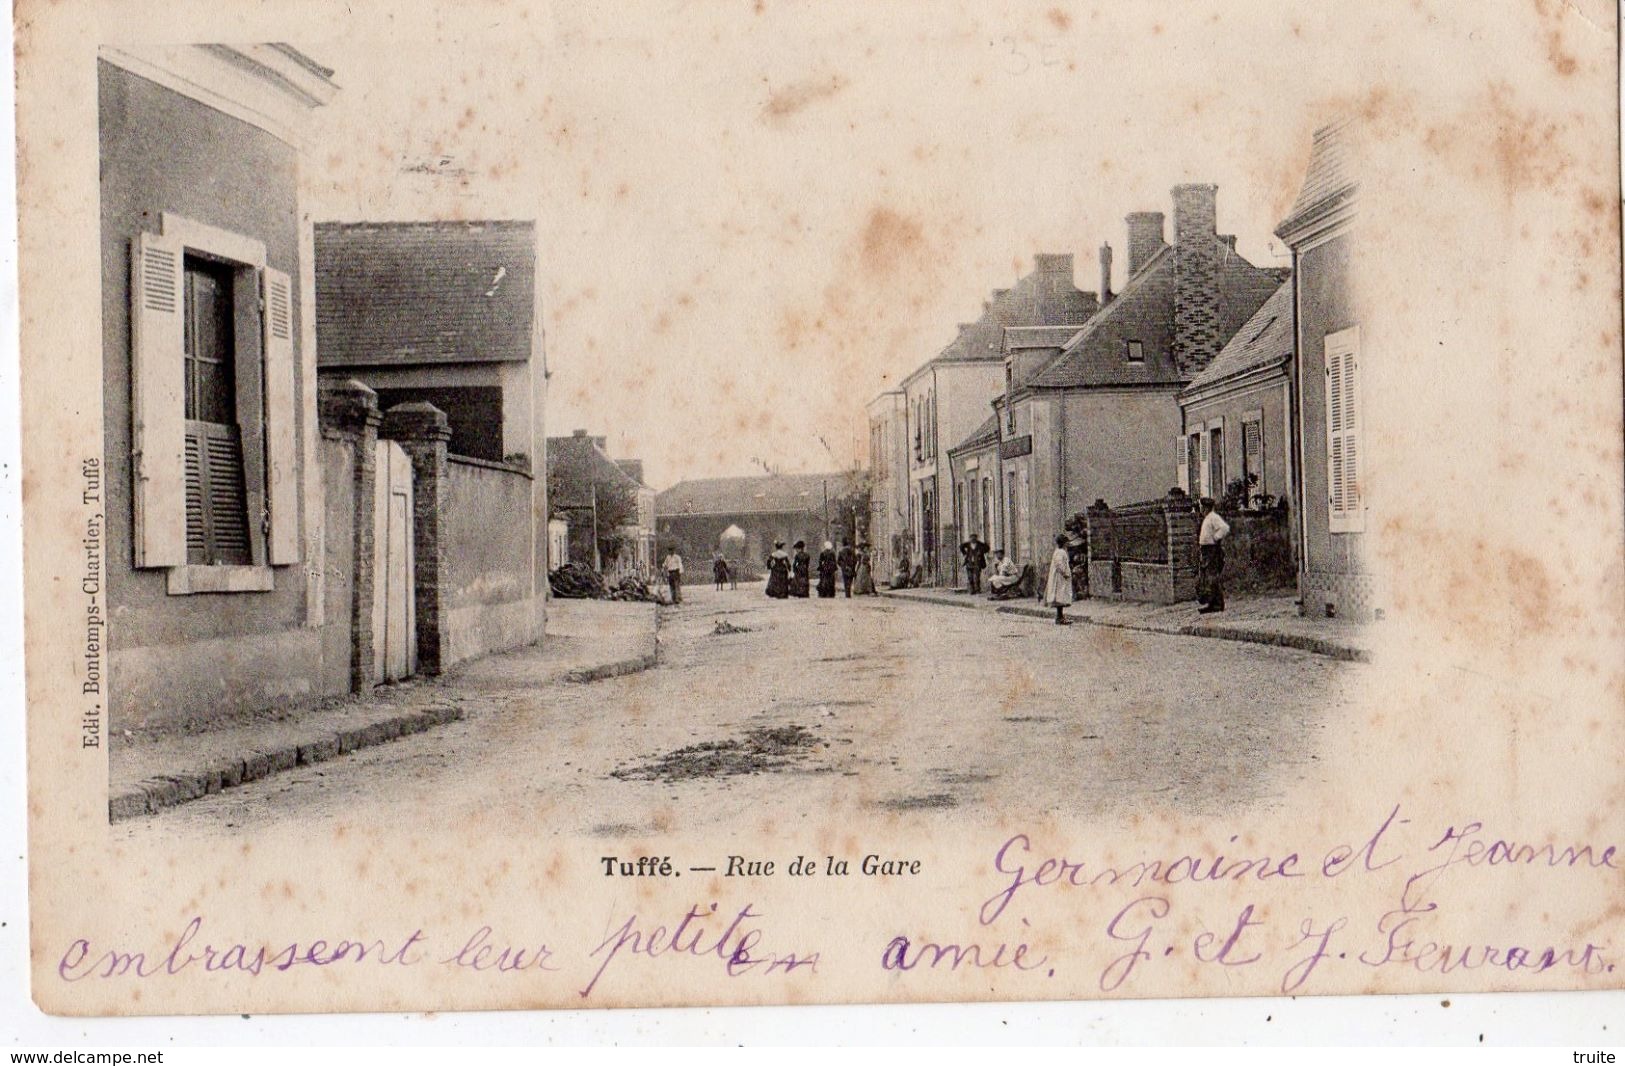 Edit. Bontemps-Chartier, Tuffé
Tuffé. — Rue de la Gare
Germaine et Jeanne
embrassent leur petite amie. G. et J.
www.delcampe.net
truite